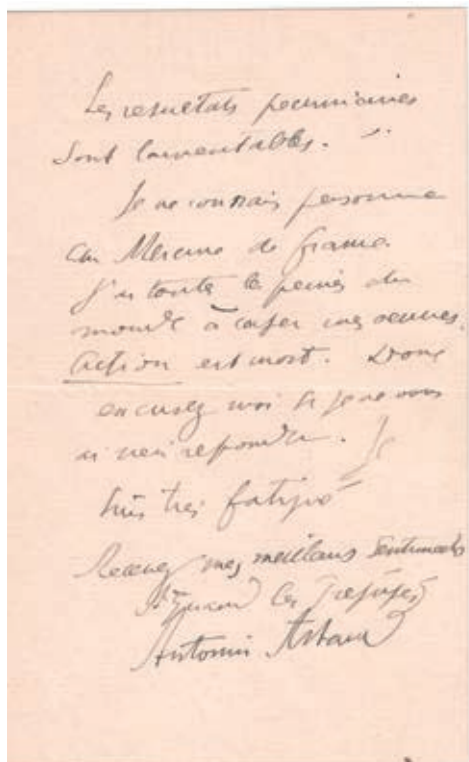 Les resultats pecuniaires
sont lamentables.
Je ne connais personne
au Mercure de France
J'ai toutes les peines du
monde à caser mes œuvres.
Action est mort. Donc
excusez moi si je ne vous
ai rien repondu. Je
suis tres fatigué
Recevez mes meilleurs sentiments
les
Antonin Artaud